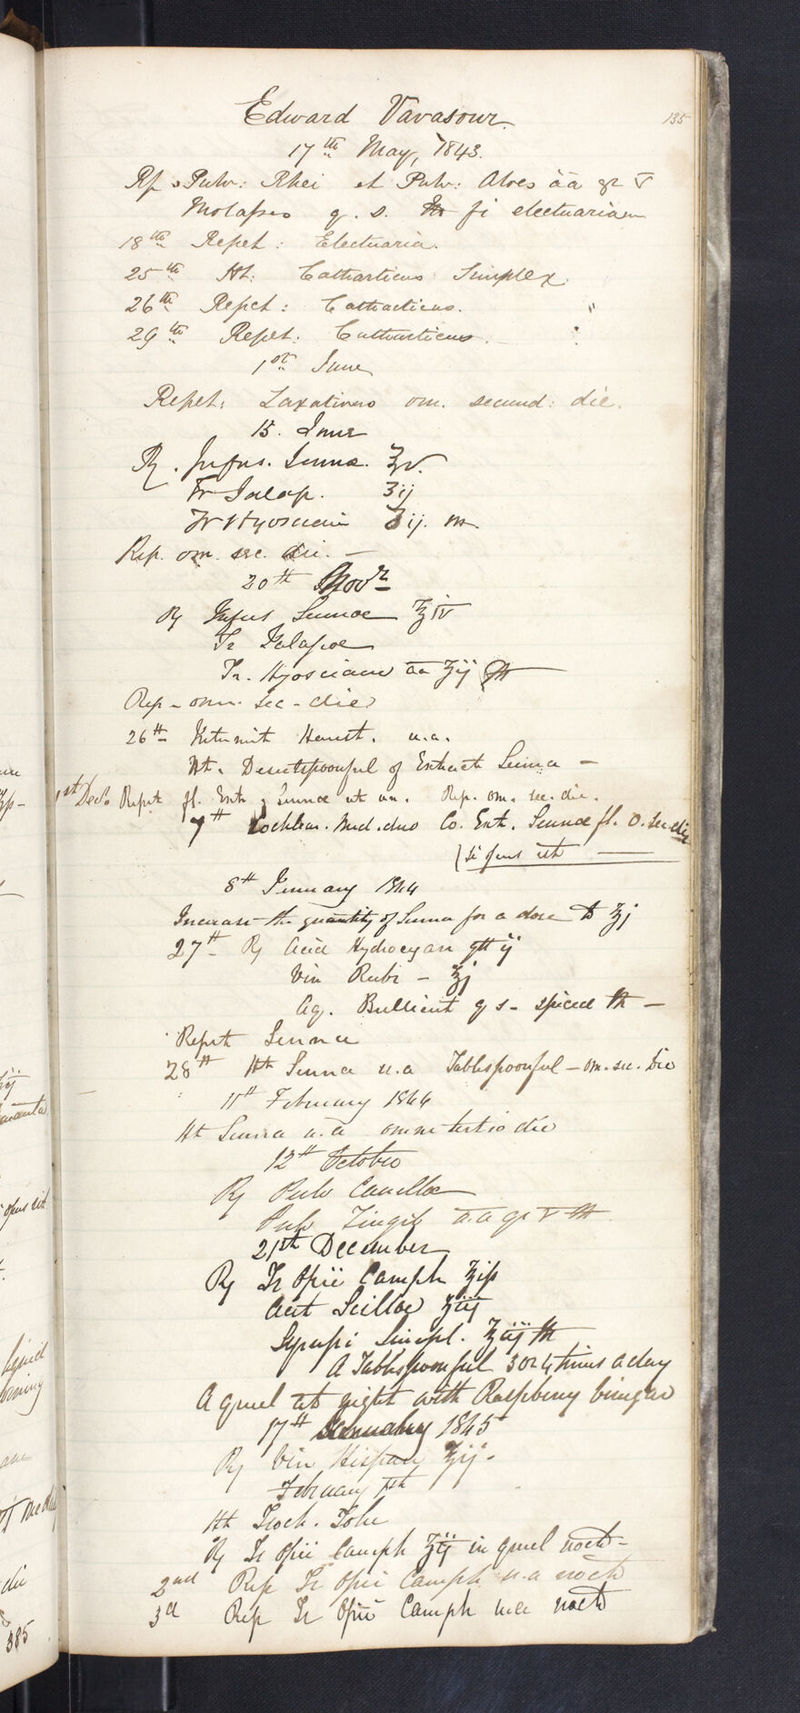 135
Edward Vavasour.
17th May, 1843.
Rp Pulv: Rhei et Pulv: Aloes āā gr v
Molasses q. s. fi electuarium
18th Repet: Electuaria.
25th Ht: Catharticus Simplex.
26th Repet: Catharticus. "
29th Repet: Catharticus. "
1st June
Repet: Laxativus om. secund: die.
15. June
R. Infus. Sennæ. ℥v.
Tr Jalap. ʒij
Tr Hyosciami ʒij. m
Rep. om. sec. die. —
20th Novr
R Infus Sennae ℥iv
Tr Jalapae
Tr. Hyosciami āā ʒij m
Rep - omn. sec - die
26th Intermit Haust. u.a.
Ht. Desertspoonful of Extract Senna —
1st Decr Repet fl. Ext of Sennae ut an. Rep. om. sec. die.
7th Cochlear. Med. duo Co. Ext. Sennae fl. o. sec. die
(si opus sit
8th January 1844
Increase the quantity of Senna for a dose to ℥j
27th R Acid Hydrocyan gtt ij
Vin Rubi - ℥j
Aq. Bullient q s - spiced m —
Repet Senna
28th Ht Senna u.a Tablespoonful - om. sec. Die
11th February 1844
Ht Senna u.a omne tertio die
12th October
R Pulv Canellae
Pulv Zingib āā gr v m
21st December
R Tr Opii Camph ℥iss
Acet Scillae ℥iij
Syrupi Simpl. ℥iij m
A Tablespoonful 3 or 4 times a day
A gruel at night with Raspberry vinegar
17th January 1845
R Vin Hispan ℥ij.
February 1st
Ht Troch. Tolu
R Tr Opii Camph ʒij in gruel nocte -
2nd Rep Tr Opii Camph u.a nocte
3d Rep Tr Opii Camph u.a nocte
385